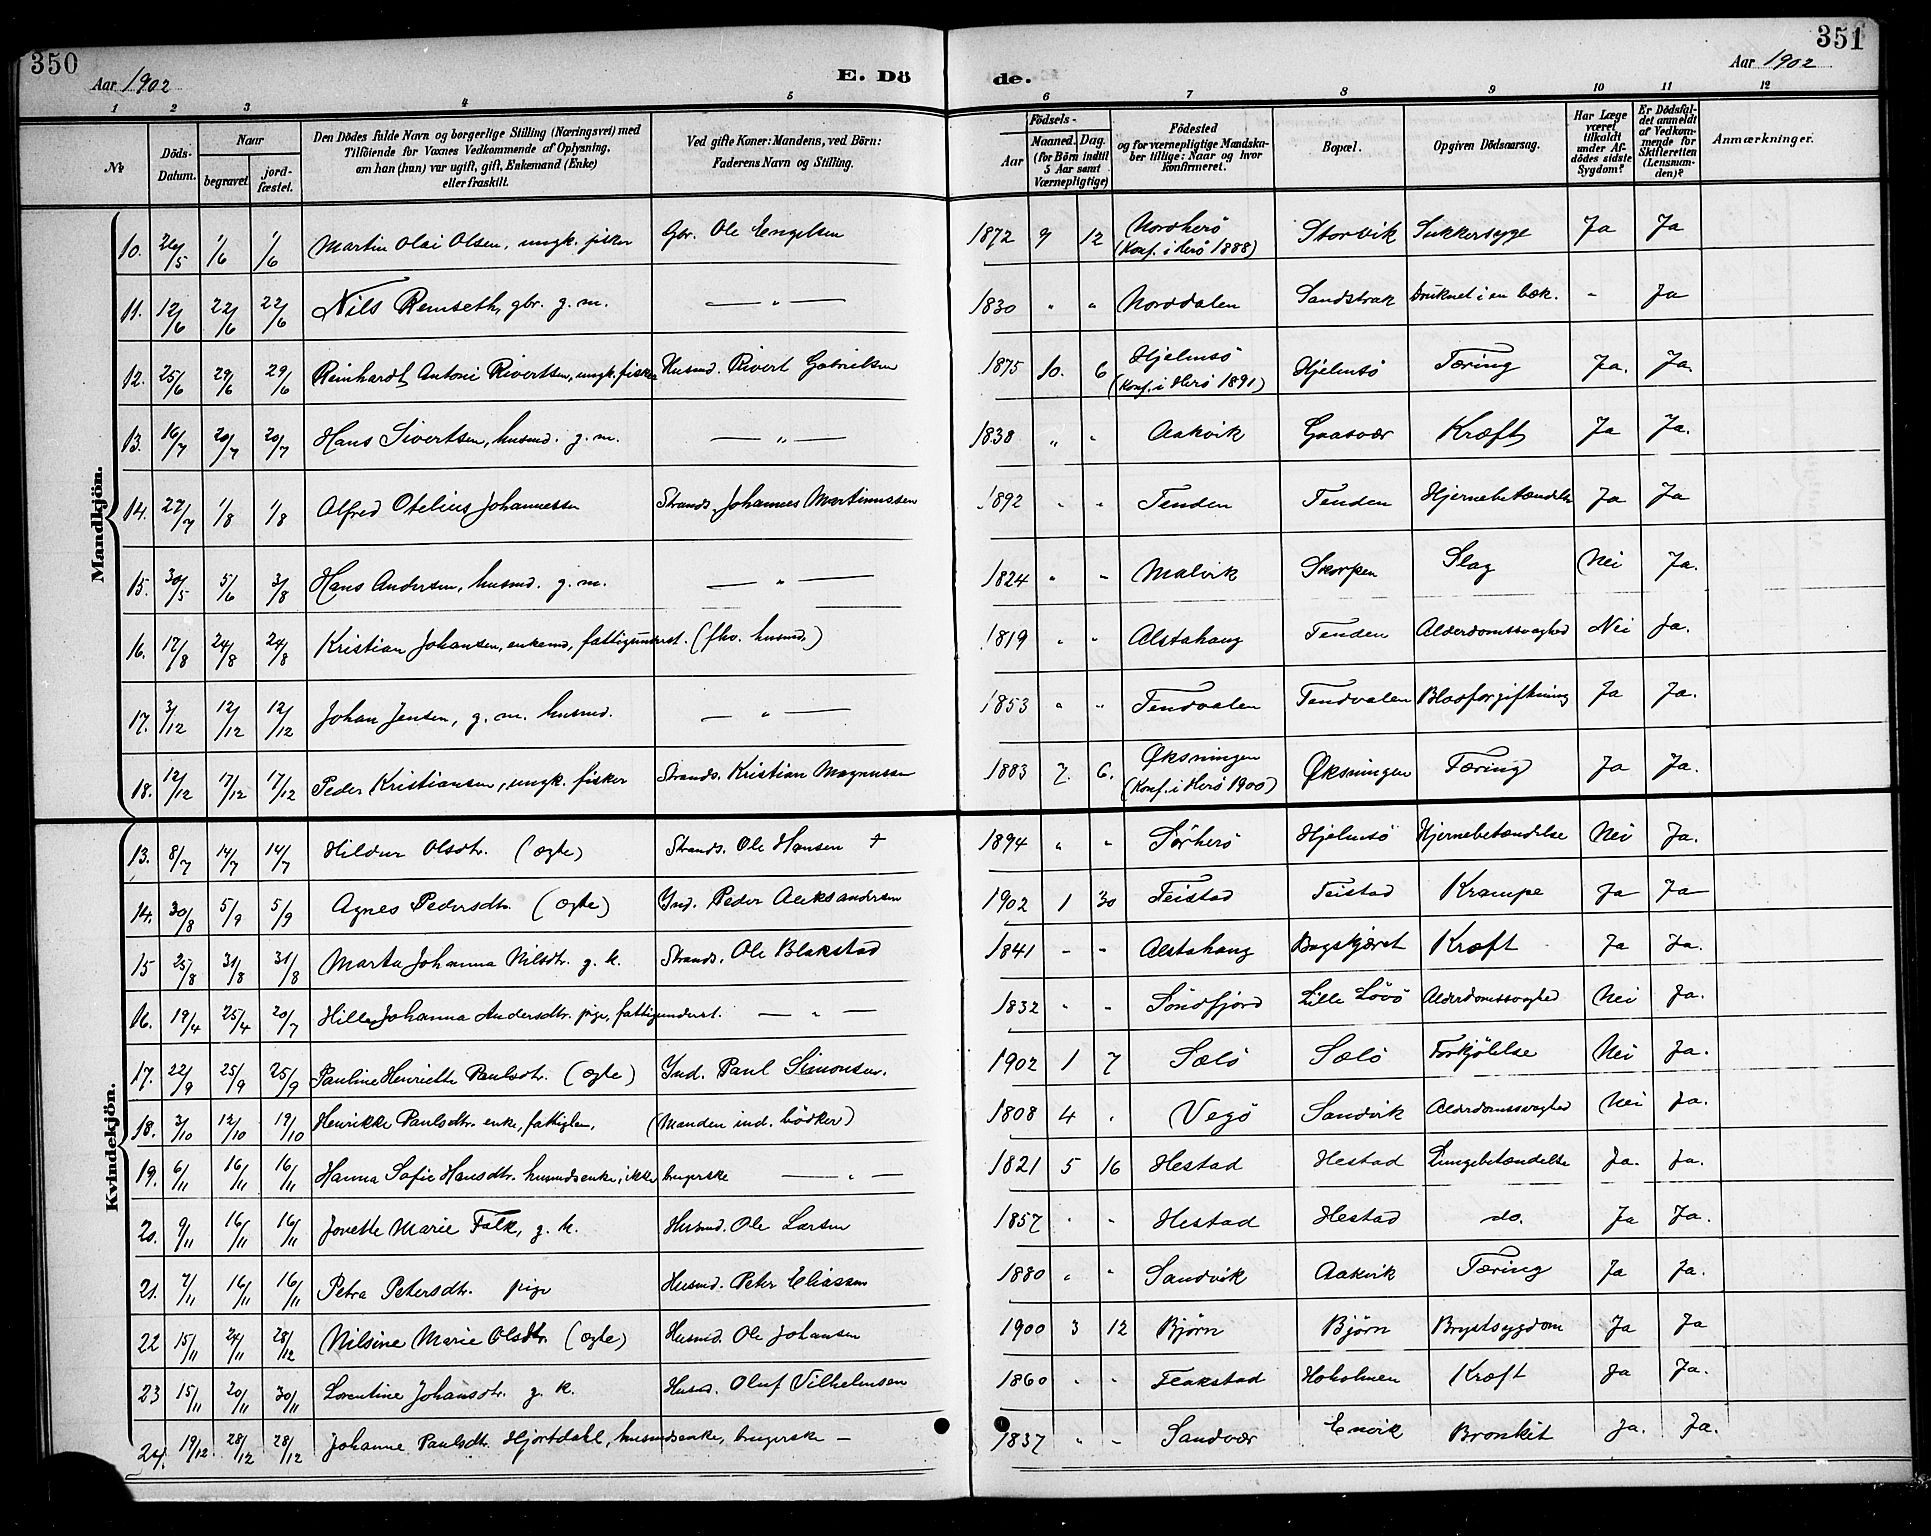 350
351
Aar 1902
E. Dö
de.
Aar 1902
1 2 3 4 5 6 7 8 9 10 11 12
№ Döds-Datum. Naar begravet. jord-fæstet. Den Dödes fulde Navn og borgerlige Stilling (Næringsvei) med Tilföiende for Voxnes Vedkommende af Oplysning, om han (hun) var ugift, gift, Enkemand (Enke) eller fraskilt. Ved gifte Koner: Mandens, ved Börn: Faderens Navn og Stilling. Födsels- Aar Maaned. Dag. (for Börn indtil 5 Aar samt Værnepligtige) Födested og for værnepligtige Mandska-ber tillige: Naar og hvor konfirmeret. Bopæl. Opgiven Dödsaarsag. Har Læge været tilkaldt under Af-dödes sidste Sygdom? Er Dödsfal-det anmeldt af Vedkom-mende for Skifteretten (Lensman-den)? Anmærkninger.
Mandkjön.
10. 26/5 1/6 1/6 Martin Olai Olsen, ungk. fisker Gbr. Ole Engelsen 1872 9 12 Nordherö (Konf. i Herö 1888) Storvik Sukkersyge Ja Ja
11. 12/6 22/6 22/6 Nils Remseth, gbr. g. m. — " — 1830 " " Norddalen Sandstrak Druknet i en bæk. - Ja
12. 25/6 29/6 29/6 Reinhardt Antoni Sivertsen, ungk. fisker Husmd. Sivert Gabrielsen 1875 10. 6 Hjelmsö (Konf. i Herö 1891) Hjelmsö Tæring Ja. Ja.
13. 16/7 20/7 20/7 Hans Sivertsen, husmd. g. m. — " — 1838 " " Aakvik Gaasvær Kræft Ja Ja.
14. 27/7 1/8 1/8 Alfred Otelius Johannessen Strands. Johannes Martinussen 1892 " " Tenden Tenden Hjernebetændelse Ja Ja
15. 30/5 5/6 3/8 Hans Andersen, husmd. g. m. — " — 1824 " " Malvik Skorpen Slag Nei Ja.
16. 17/8 24/8 24/8 Kristian Johansen, enkemd, fattigunderst. (fhv. husmd.) 1819 " " Alstahaug Tenden Alderdomssvaghed Nei Ja.
17. 3/12 12/12 12/12 Johan Jensen, g. m. husmd. — " — 1853 " " Tendvalen Tendvalen Blodforgiftning Ja Ja.
18. 12/12 17/12 17/12 Peder Kristiansen, ungk. fisker Strands. Kristian Magnussen 1883 7. 6. Øksningen (Konf. i Herö 1900) Øksningen Tæring Ja Ja.
Kvindekjön.
13. 8/7 14/7 14/7 Hildur Olsdtr. (ægte) Strands. Ole Hansen † 1894 " " Sörherö Hjelmsö Hjernebetændelse Nei Ja.
14. 30/8 5/9 5/9 Agnes Pedersdtr. (ægte) Ind. Peder Aleksandersen 1902 1 30 Teistad Teistad Krampe Ja Ja
15 25/8 31/8 31/8 Marta Johanna Nilsdtr. g. k. Strands. Ole Blakstad 1841 - - Alstahaug Bogskjæret Kræft Ja Ja.
16. 19/4 25/4 20/7 Hille Johanna Andersdtr. pige, fattigunderst. — " — 1832 " " Söndfjord Lille Lövö Alderdomssvaghed Nei Ja.
17. 22/9 25/9 25/9 Pauline Henriette Paulsdtr. (ægte) Ind. Paul Simonsen. 1902 1 7 Sælö Sælö Forkjölelse Nei Ja.
18. 3/10 12/10 19/10 Henrikke Paulsdtr. enke, fattiglem. (Manden ind. bödker) 1808 4 . Vegö Sandvik Alderdomssvaghed Nei Ja.
19. 6/11 16/11 16/11 Hanna Sofie Hansdtr. husmdsenke, ikke brugerske — " — 1821 5 16 Hestad Hestad Lungebetændelse Ja. Ja.
20. 9/11 16/11 16/11 Jonette Marie Falk, g. k. Husmd. Ole Larsen 1857 " " Hestad Hestad do. Ja Ja.
21. 7/11 16/11 16/11 Petra Petersdtr. pige Husmd. Peter Eliassen 1880 " " Sandvik Aakvik Tæring Ja Ja.
22 15/11 24/11 28/12 Nilsine Marie Olsdtr. (ægte) Husmd. Ole Johansen 1900 3 12 Björn Björn Brystsygdom Ja Ja
23 15/11 20/11 30/11 Lorentine Johansdtr. g. k. Husmd. Oluf Vilhelmsen 1860 " " Flakstad Hoholmen Kræft Ja Ja.
24. 19/12. 28/12 28/12 Johanne Paulsdtr. Hjortdahl, husmdsenke, brugerske — 1837 " - Sandvær Envik Bronkit Ja. Ja.